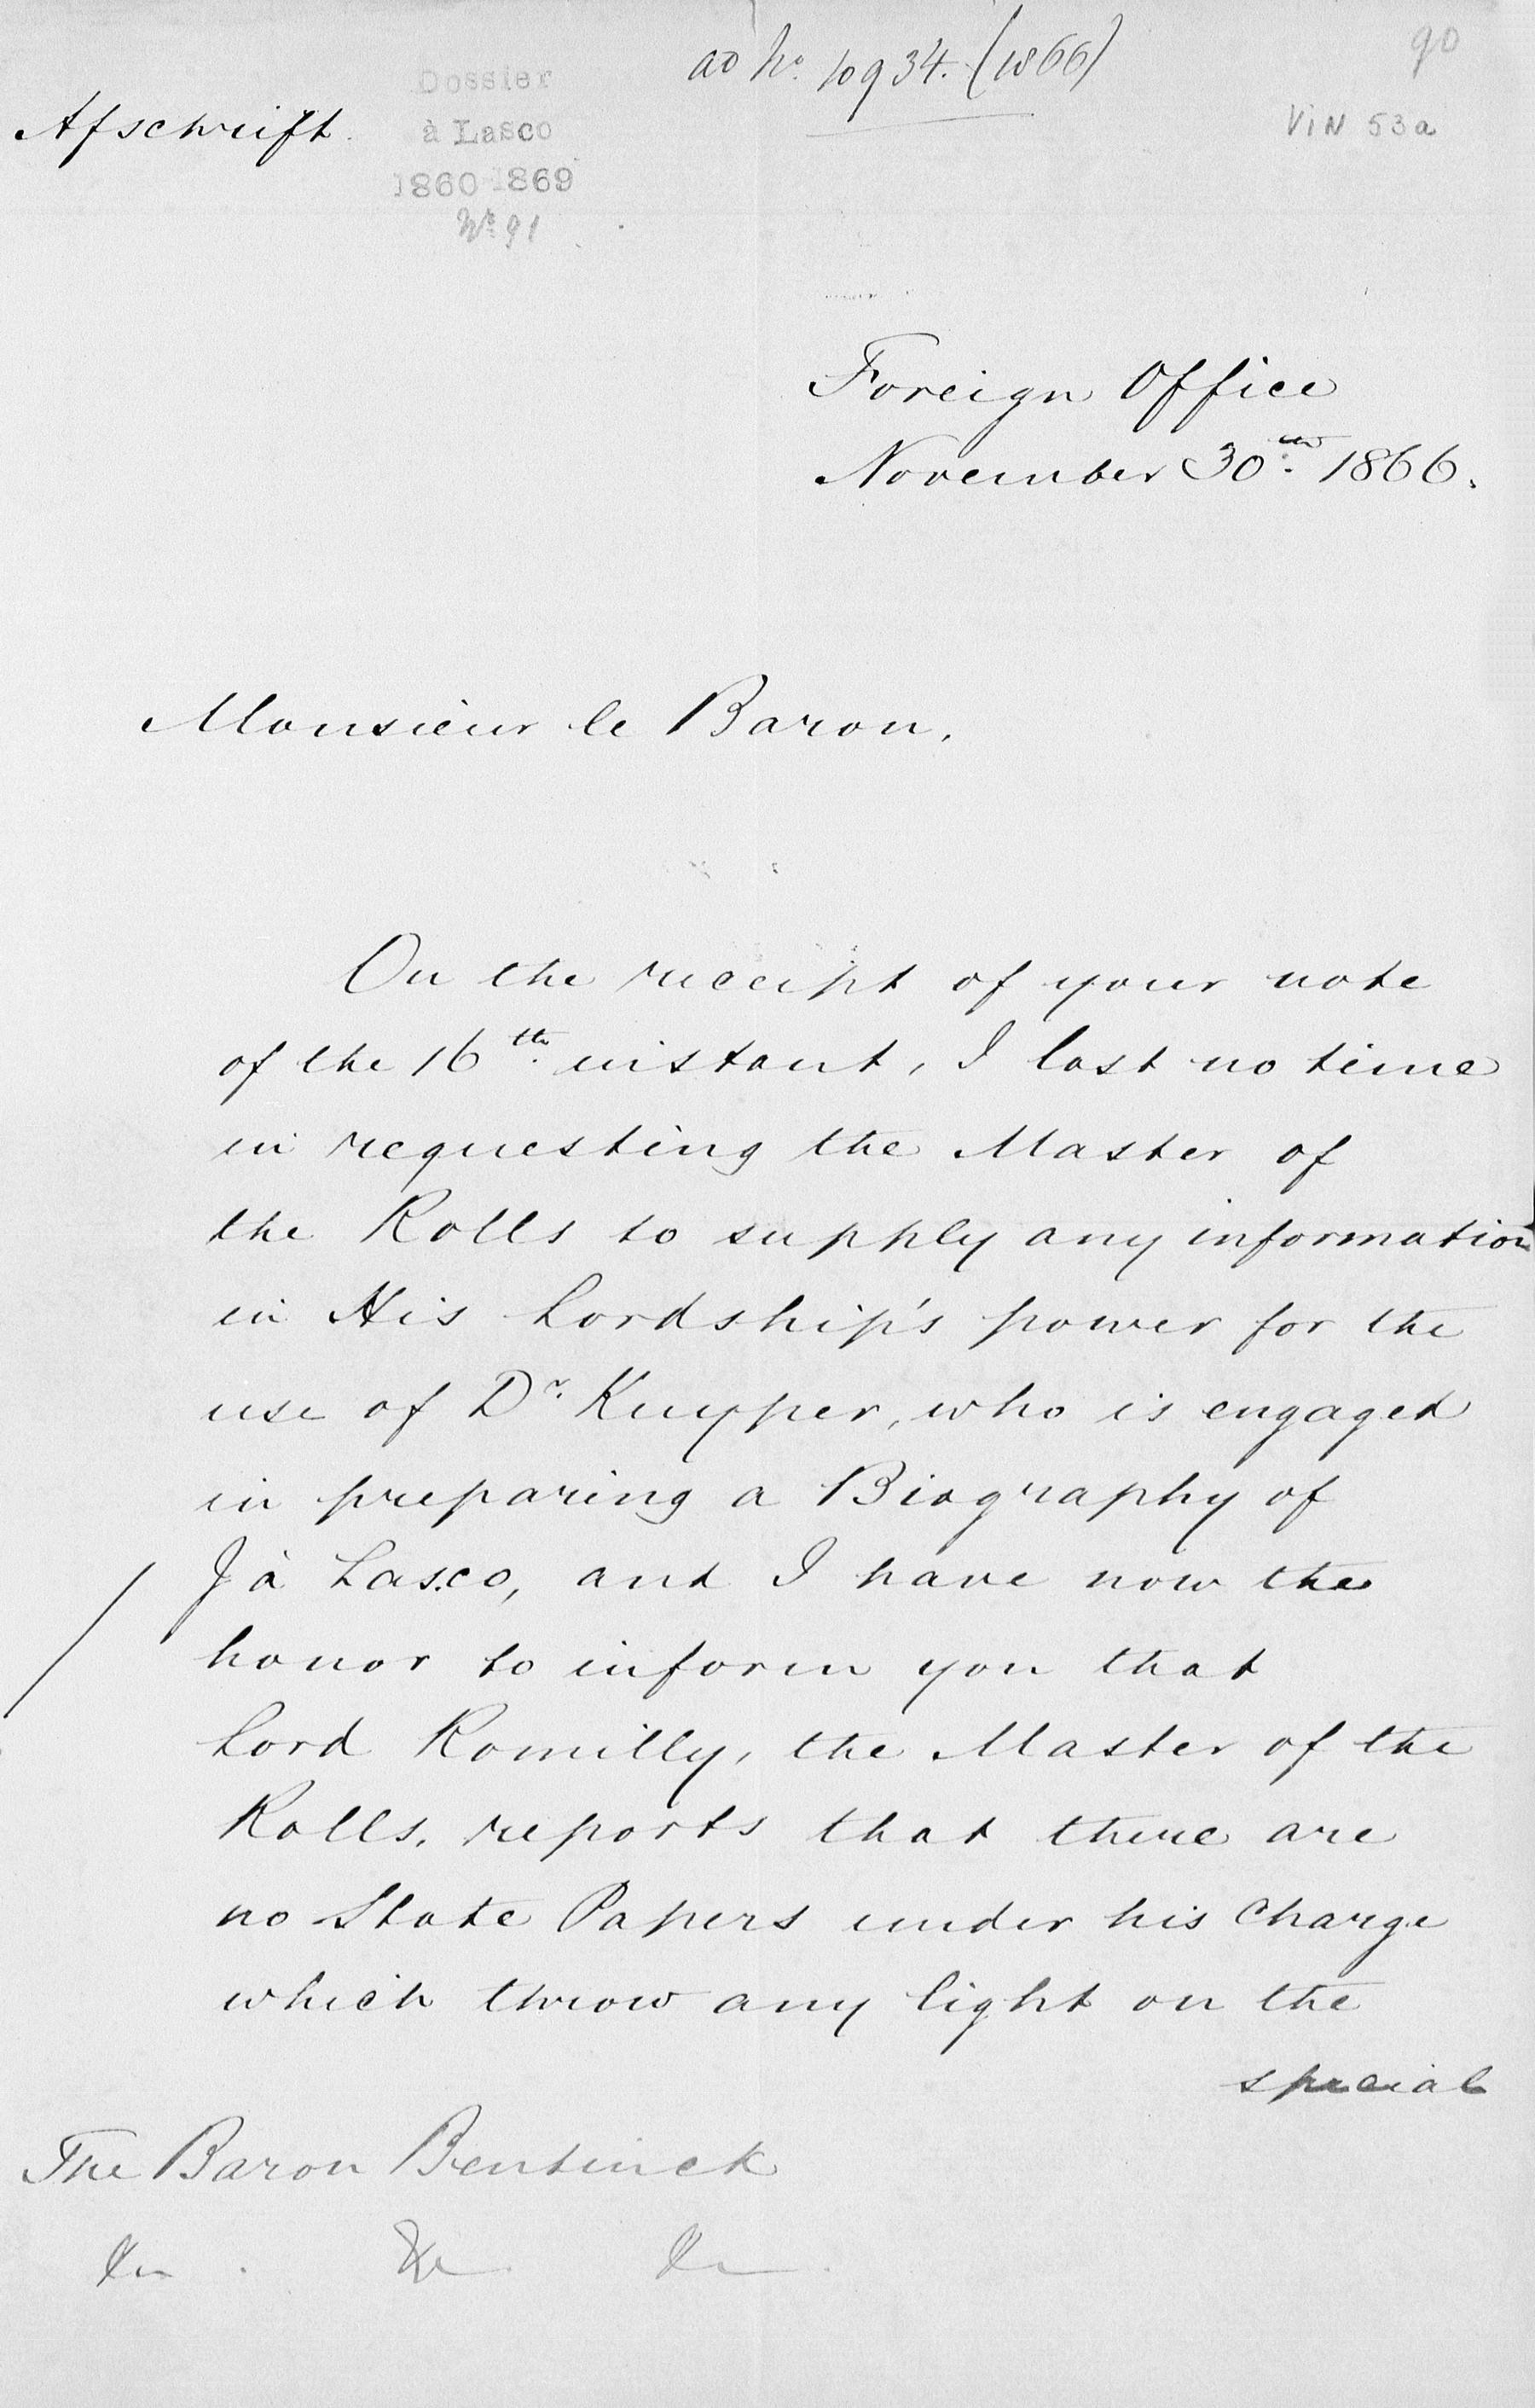 ad No. 10934. (1866)
90
Dossier
à Lasco
1860-1869
No. 91
Afschrift.
VIN 53a
Foreign Office
November 30th. 1866.
Monsieur le Baron,
On the receipt of your note
of the 16th. instant, I lost no time
in requesting the Master of
the Rolls to supply any information
in His Lordship's power for the
use of Dr. Kuyper, who is engaged
in preparing a Biography of
J à Lasco, and I have now the
honor to inform you that
Lord Romilly, the Master of the
Rolls, reports that there are
no State Papers under his Charge
which throw any light on the
special
The Baron Bentinck
&c. &c. &c.